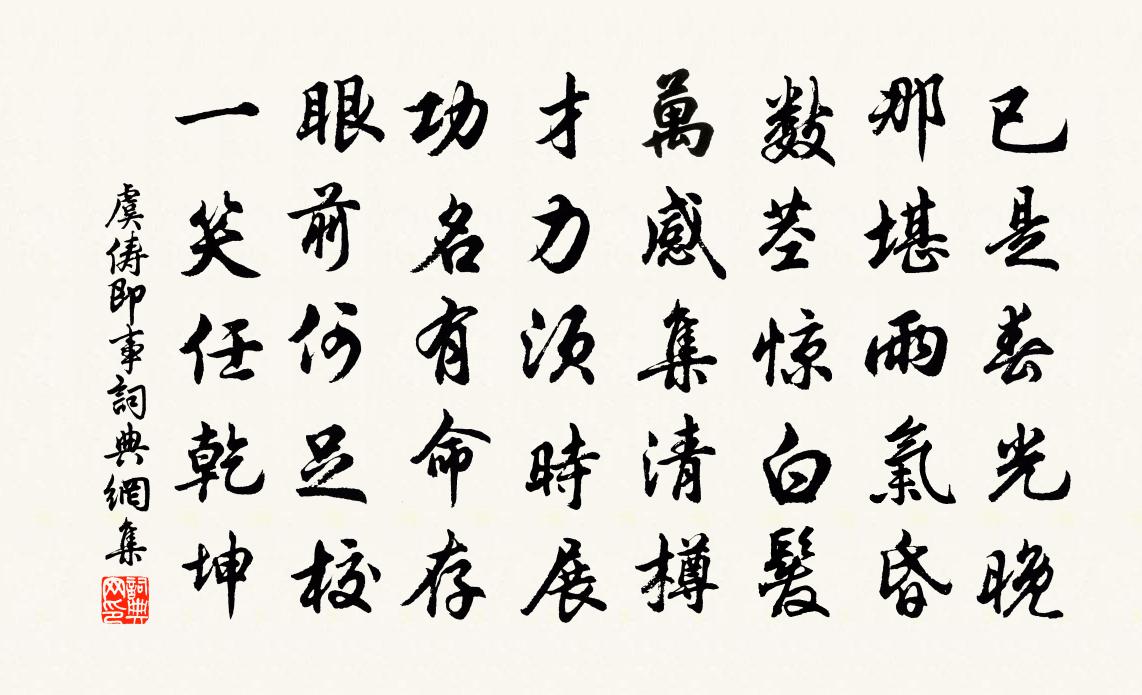 已是春光晚
那堪雨氣昏
數莖惊白髮
萬感集清樽
才力須時展
功名有命存
眼前何足校
一笑任乾坤
虞儔即事詞典網集
詞典网印